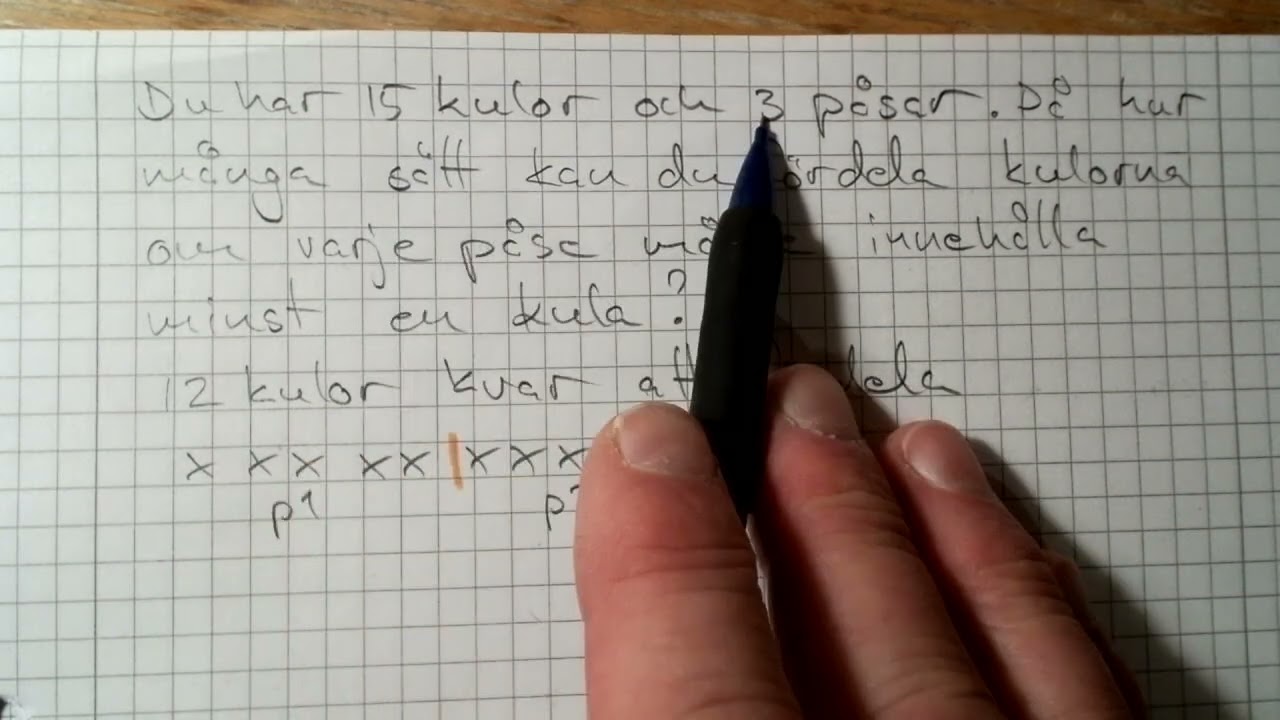 Du har 15 kulor och 3 påsar. På hur
många sätt kan du fördela kulorna
om varje påse måste innehålla
minst en kula?
12 kulor kvar att dela
x x x x x | x x x
p1 p